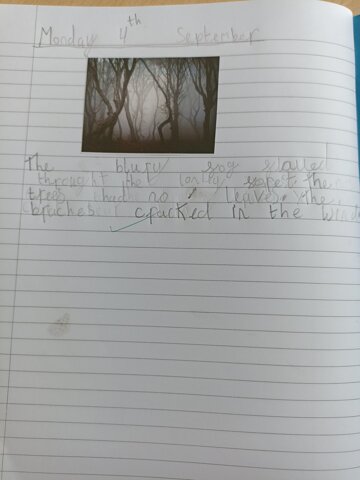 Monday 4th September
The blury fog
throught the lonly forest the
trees had no leaves. The
braches cracked in the wind